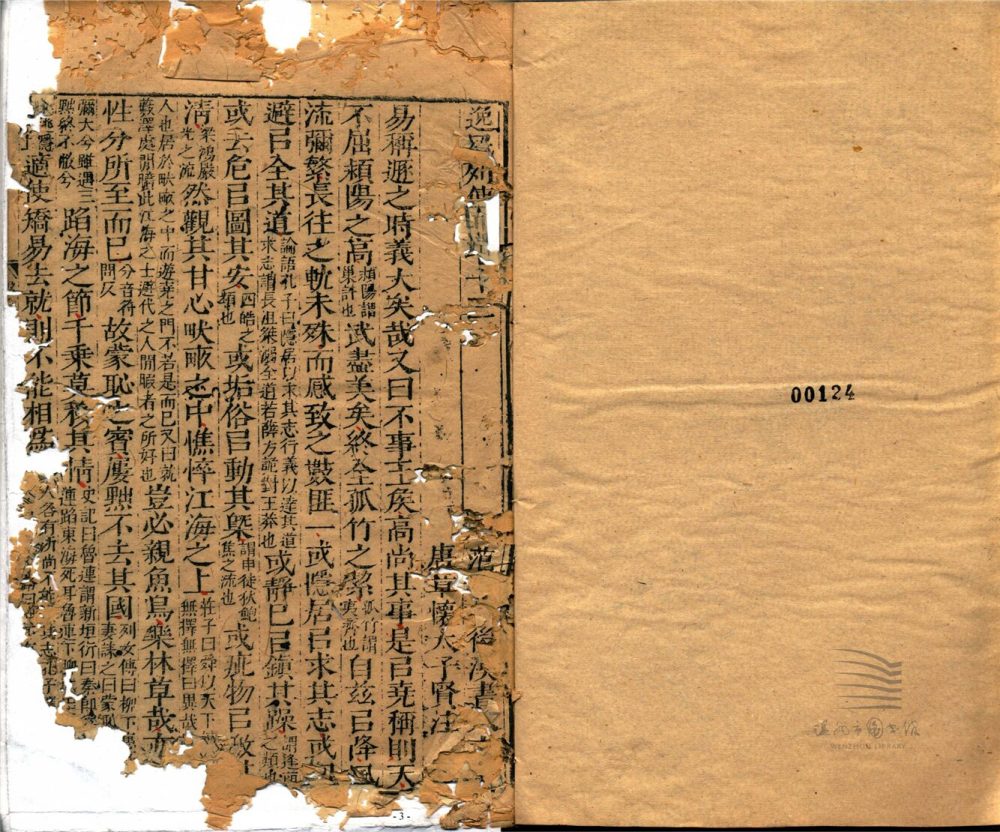 逸民列傳
范 後漢書
唐章懷太子賢注
易稱遯之時義大矣哉又曰不事王侯高尚其事是㠯堯稱則天
不屈潁陽之高潁陽謂巢許也武盡美矣終全孤竹之絜孤竹謂夷齊也自茲㠯降風
流彌繁長往之軌未殊而感致之數匪一或隱居㠯求其志或回
避㠯全其道論語孔子曰隱居以求其志行義以達其道求志謂長沮桀溺全道若薛方詭對王莽也或靜己㠯鎮其躁謂逢萌之類也
或去危㠯圖其安四皓之類也或垢俗㠯動其槩謂申徒狄鮑焦之流也或疵物㠯激其
清梁鴻嚴光之流然觀其甘心畎畝之中憔悴江海之上莊子曰舜以天下無擇無擇曰異哉
人也居於畎畝之中而遊堯之門不若是而已又曰就藪澤處閒曠此江海之士避代之人閒暇者之所好也豈必親魚鳥樂林草哉亦
性分所至而已分音符問反故蒙恥之賓屢黜不去其國列女傳曰柳下惠妻誄之曰蒙恥
彌大兮雖遇三黜終不蔽兮蹈海之節千乘莫移其情史記曰魯連謂新垣衍曰秦即連蹈東海死耳魯連下
適使矯易去就則不能相為人各有所尚
-3-
00124
溫州市圖書館
WENZHOU LIBRARY